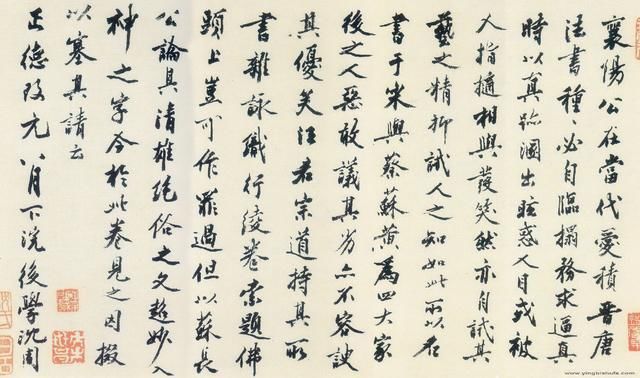 襄陽公在當代愛積晉唐
法書種必自臨搨務求逼真
時以真跡溷出眩惑人目或被
人指擿相與發笑然亦自試其
藝之精抑試人之知如此所以名
書于宋與蔡蘇黃爲四大家
後之人惡敢議其劣亦不容諛
其優矣汪君宗道持其所
書雜詠織行綾卷索題佛
頭上豈可作罪過但以蘇長
公論其清雄絕俗之文超妙入
神之字今於此卷見之因掇
以塞其請云
正德改元八月下浣後學沈周
www.yingbishufa.com